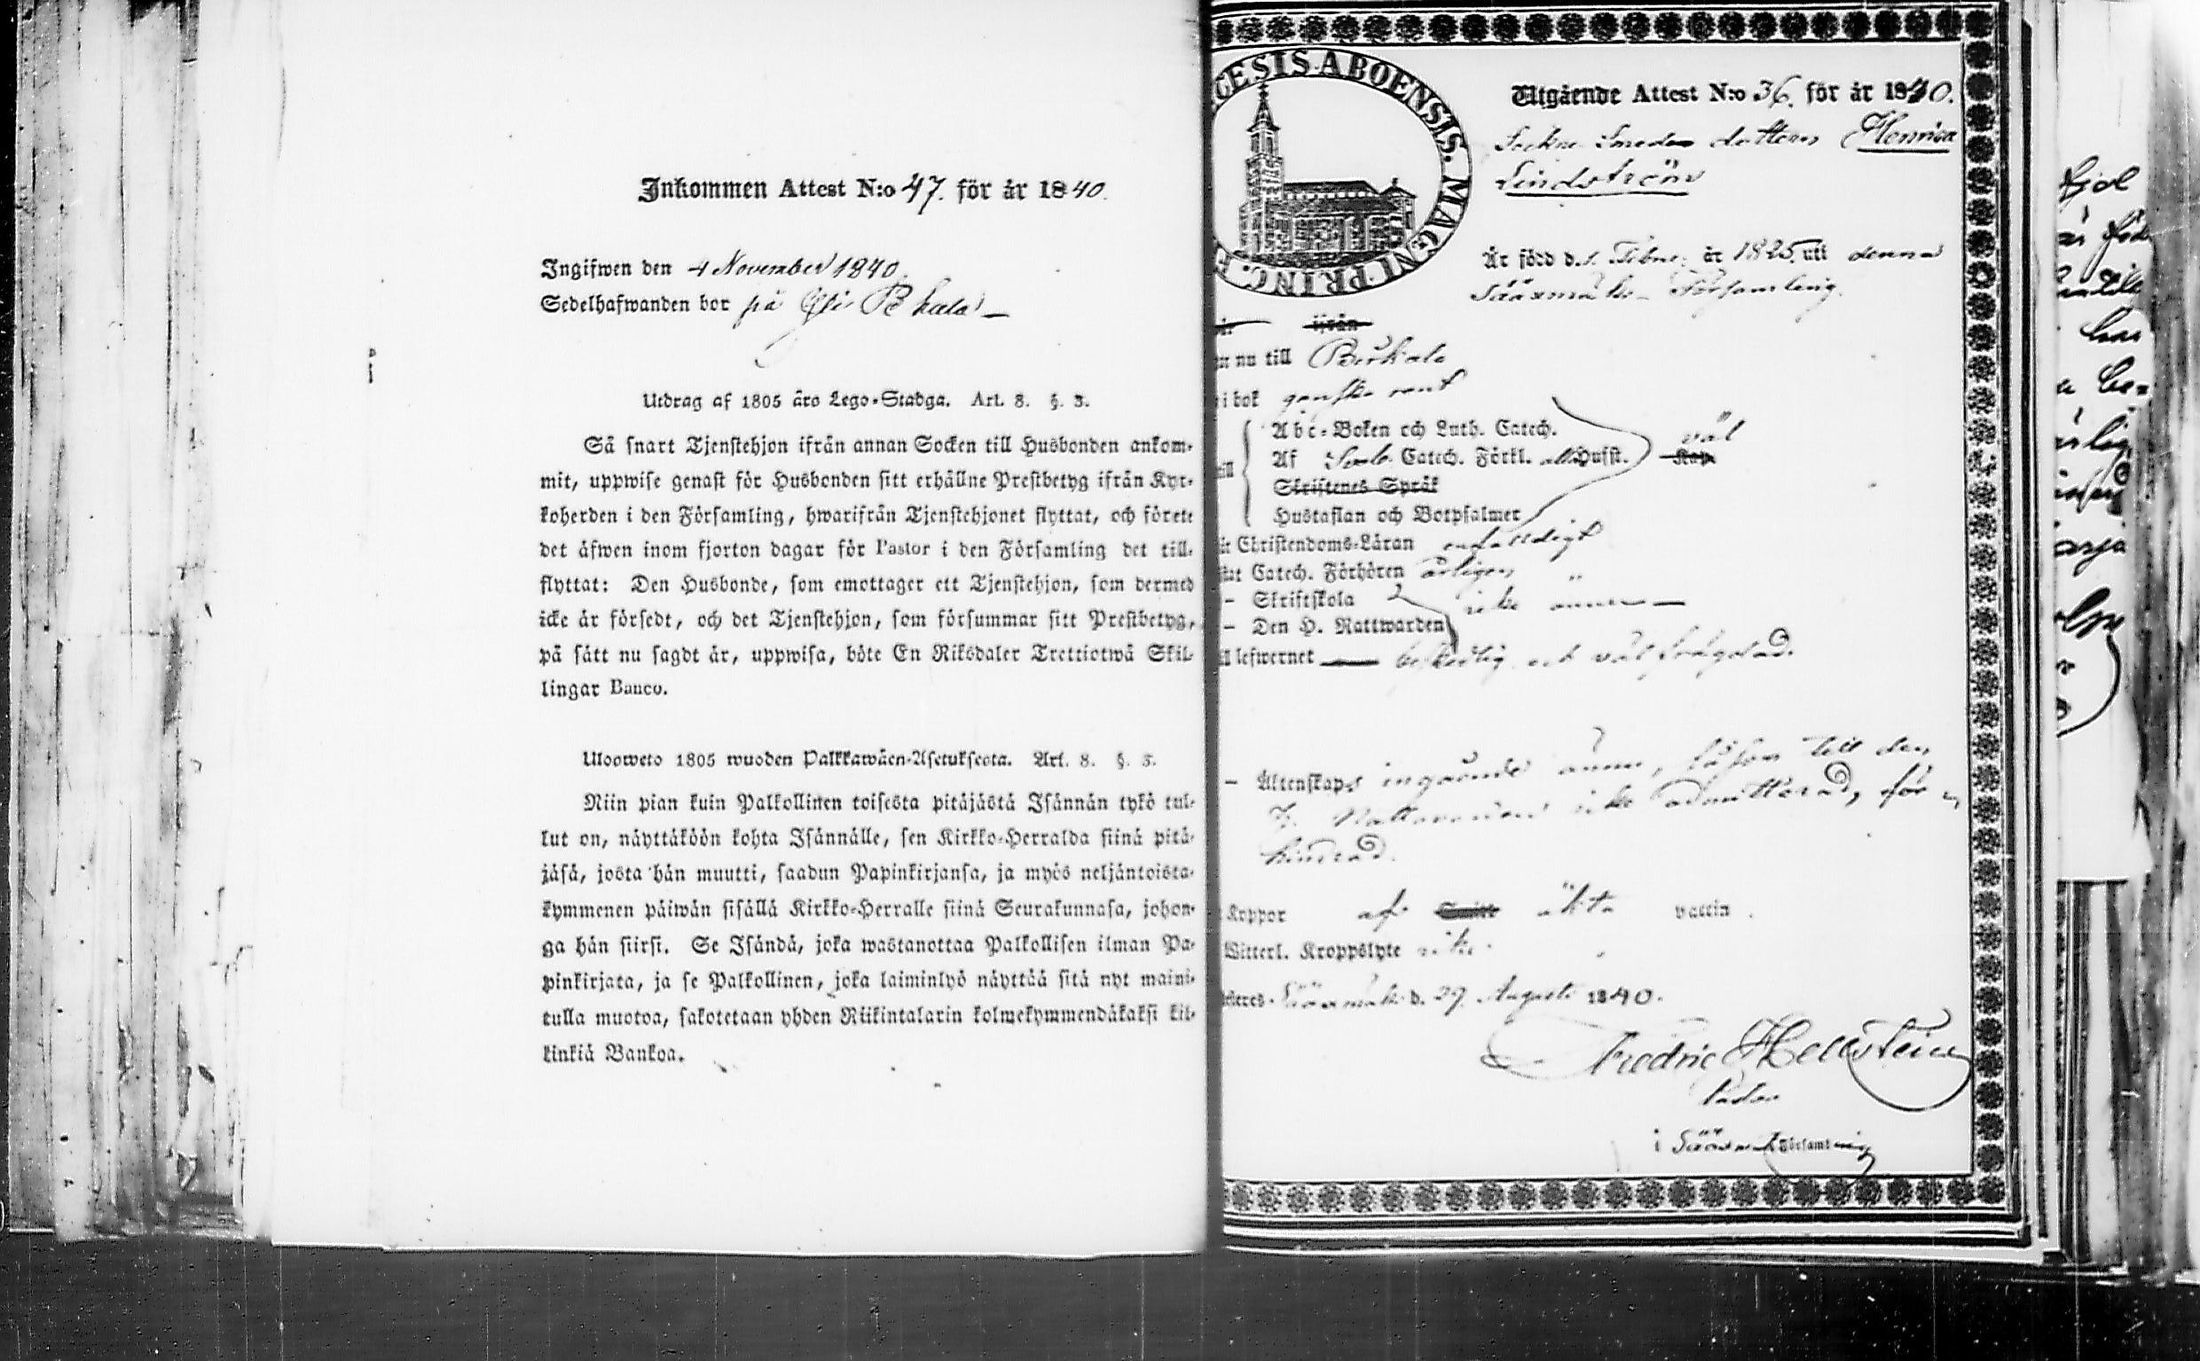 Inkommen Attest N:o 47. för år 1840.
Ingifwen den 4 November 1840.
Sedelhafwanden bor på
Utdrag af 1805 års Lego-Stadga. Art. 8. §. 3.
Så snart Tjenstehjon ifrån annan Socken till Husbonden ankom-
mit, uppwise genast för Husbonden sitt erhållne Prestbetyg ifrån Kyr-
koherden i den Församling, hwarifrån Tjenstehjonet flyttat, och förete
det äfwen inom fjorton dagar för Pastor i den Församling det till-
flyttat: Den Husbonde, som emottager ett Tjenstehjon, som dermed
icke är försedt, och det Tjenstehjon, som försummar sitt Prestbetyg,
på sätt nu sagdt är, uppwisa, böte En Riksdaler Trettiotwå Skil-
lingar Banco.
Uloosweto 1805 wuoden Palkkawäen-Asetuksesta. Art. 8. §. 3.
Niin pian kuin Palkollinen toisesta pitäjästä Isännän tykö tul-
lut on, näyttäköön kohta Isännälle, sen Kirkko-Herralda siinä pitä-
jäsä, josta hän muutti, saadun Papinkirjansa, ja myös neljäntoista-
kymmenen päiwän sisällä Kirkko-Herralle siinä Seurakunnasa, johon-
ga hän siirsi. Se Isändä, joka wastanottaa Palkollisen ilman Pa-
pinkirjata, ja se Palkollinen, joka laiminlyö näyttää sitä nyt maini-
tulla muotoa, sakotetaan yhden Riikintalarin kolmekymmendäkaksi kil-
linkiä Bankoa.
ESIS ABOENSIS. MAGNI PRINC. F
Utgående Attest N:o 36. för år 1840.
Sockne Smeds dottern Henrica
Lindström
Är född d. 1. Febru: år 1825, uti denna
Sääxmäki Församling.
ifrån
nu till Birkala
i bok ganska rent
Abc-Boken och Luth. Catech.
Af Catech. Förkl. Hufst. väl
Skriftenes Språk
Hustaflan och Botpsalmer
Christendoms-Läran enfaldigt
Catech. Förhören årligen
- Skriftskola icke ännu
- Den H. Nattwarden
lefwernet beskedlig och väl frägdad.
- Äktenskaps ingående ännu, såsom till den
H. Nattvarden icke admitterad, för-
hindrad.
Koppor af äkta vaccin.
Witterl. Kroppslyte icke.
Sääxmäki d. 29. Augusti 1840.
Fredric Hellsten
Pastor
i Sääxmäki Församling